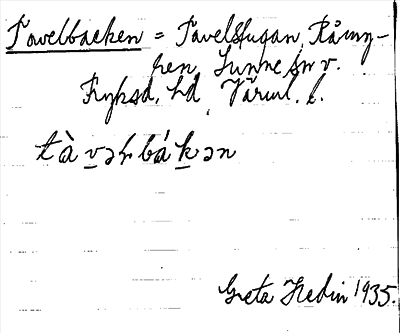 Tavelbacken = Tavelstugan, Råmy-
ren, Sunne sn v.
Fryksd. hd Värml. l.
tàvəɽbákən
Greta Hedin 1935.